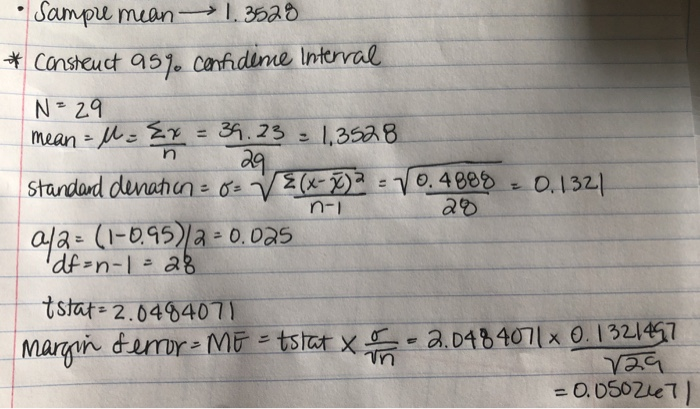 • Sample mean → 1.3528
* Construct 95% confidence Interval
N = 29
mean = μ = Σx/n = 39.23/29 = 1.3528
standard deviation = σ = √(Σ(x-x̄)²/n-1) = √(0.4888/28) = 0.1321
α/2 = (1-0.95)/2 = 0.025
df = n-1 = 28
tstat = 2.0484071
margin of error = ME = tstat × σ/√n = 2.0484071 × 0.1321497/√29
= 0.0502671